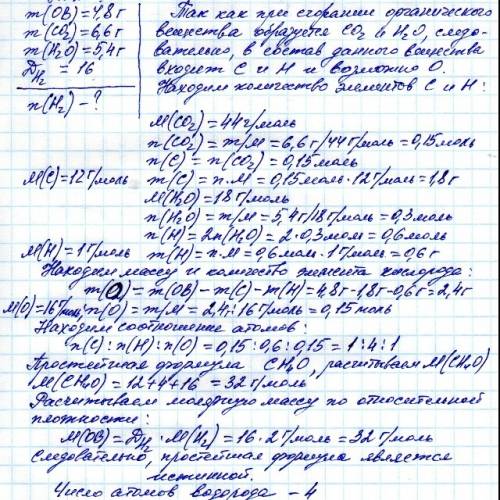 m(ОВ) = 4,8 г
m(CO₂) = 6,6 г
m(H₂O) = 5,4 г
Д H₂ = 16
n(H₂) - ?
Так как при сгорании органического
вещества образуется CO₂ и H₂O, следо-
вательно, в состав данного вещества
входят С и Н и возможно О.
Находим количество элементов С и Н:
M(CO₂) = 44 г/моль
n(CO₂) = m/M = 6,6 г/44 г/моль = 0,15 моль
n(C) = n(CO₂) = 0,15 моль
M(C) = 12 г/моль m(C) = n·M = 0,15 моль·12 г/моль = 1,8 г
M(H₂O) = 18 г/моль
n(H₂O) = m/M = 5,4 г/18 г/моль = 0,3 моль
n(H) = 2n(H₂O) = 2·0,3 моль = 0,6 моль
M(H) = 1 г/моль m(H) = n·M = 0,6 моль·1 г/моль = 0,6 г
Находим массу и количество элемента кислорода:
m(O) = m(ОВ) - m(C) - m(H) = 4,8 г - 1,8 г - 0,6 г = 2,4 г
M(O) = 16 г/моль; n(O) = m/M = 2,4 : 16 г/моль = 0,15 моль
Находим соотношение атомов:
n(C) : n(H) : n(O) = 0,15 : 0,6 : 0,15 = 1 : 4 : 1
Простейшая формула CH₄O, расчитываем M(CH₄O)
M(CH₄O) = 12+4+16 = 32 г/моль
Расчитываем молярную массу по относительной
плотности:
M(ОВ) = Д H₂ · M(H₂) = 16·2 г/моль = 32 г/моль
следовательно, простейшая формула является
истинной.
Число атомов водорода - 4